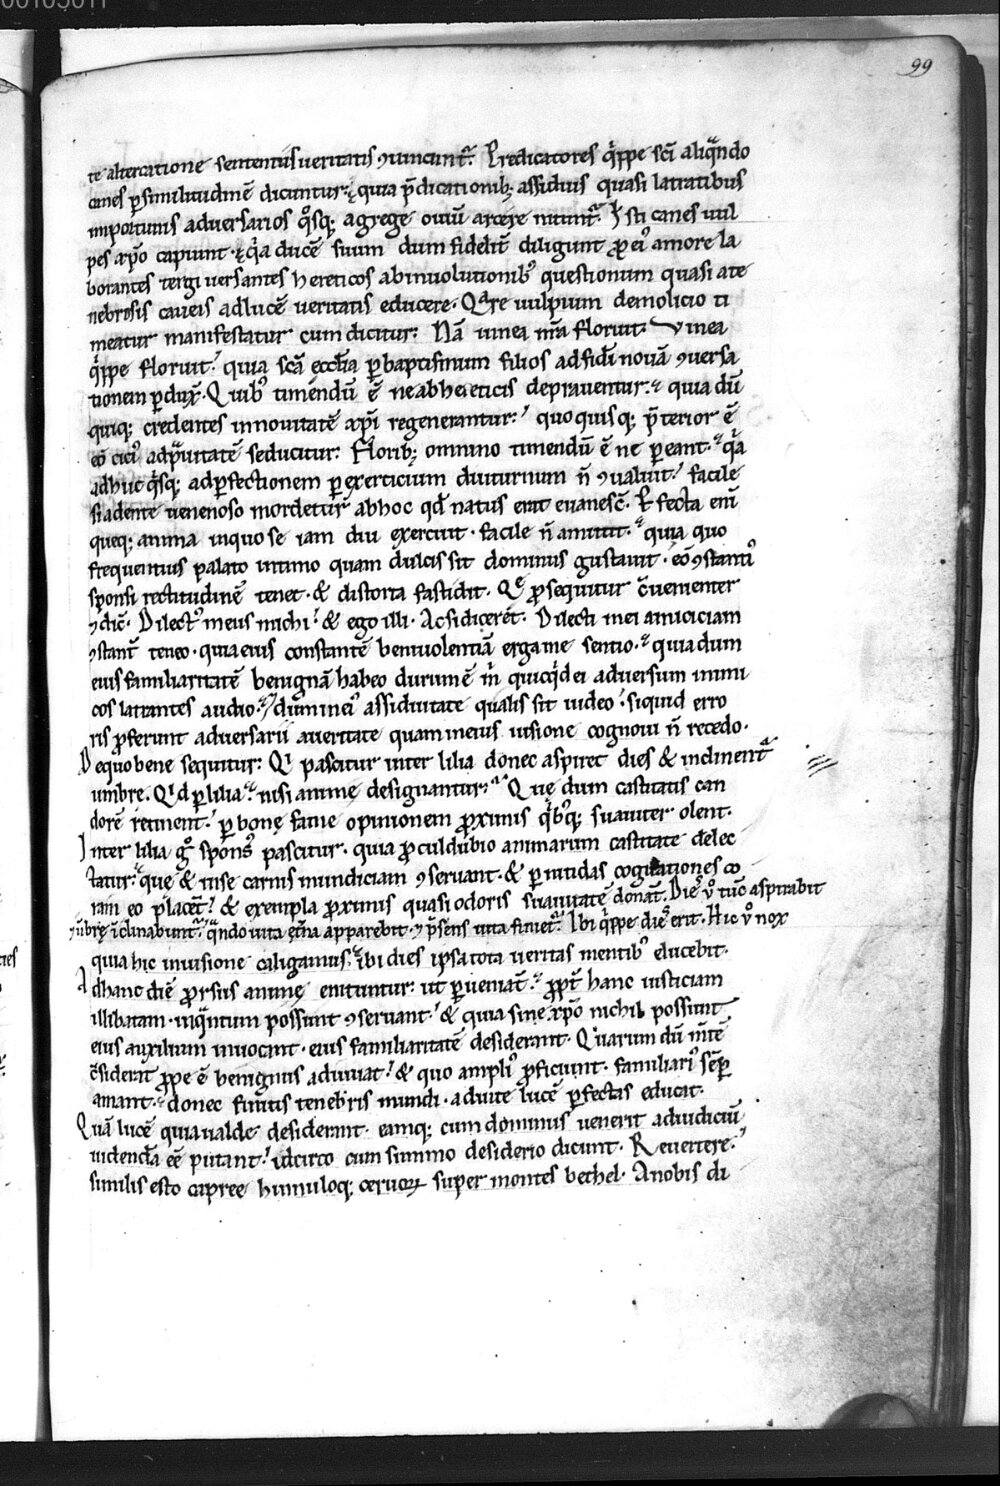 99
te altercatione sententiis veritatis ꝯvincunt᷑. Predicatores q̇ppe sc̄i aliq̄ndo
canes ꝑ similitudinē dicuntur. quia p̄dicationib; assiduis quasi latratibus
importunis adversarios q̊sq; a grege ouiū arcere nitunt᷑. Isti canes vul
pes xp̄o capiunt. q̇a ducē suum dum fidelit᷑ diligunt ꝓ ei᷒ amore la
borantes tergiversantes hereticos ab involutionib᷒ questionum quasi a te
nebrosis caveis ad lucē veritatis educere. Qᵃre vulpium demolicio ti
meatur manifestatur cum dicitur: Nā vinea nr̄a floruit. Vinea
q̇ppe floruit. quia scā eccłia ꝑ baptismum filios ad fidi novā ꝯversa
tionem ꝑdux̄. Quib᷒ timendū ē ne ab hereticis depraventur. quia dū
quiq; credentes in novitatē xp̄i regenerantur. quo quisq; p̄terior ē
eo citi᷒ ad pᵃvitatē seducitur: Florib; omnino timendū ē ne ꝑeant. q̇a
adhuc q̇sq; ad ꝑfectionem ꝑ exercitium diuturnum n̄ ꝯvaluit. facile
si a dente venenoso mordetur ab hoc qđ natus erat evanesc̄. Ꝑfecta eni
queq; anima in quo se iam diu exercuit. facile n̄ amittit. quia quo
frequentius palato intimo quam dulcis sit dominus gustavit. eō ꝯstanti᷒
sponsi rectitudinē tenet. & distorta fastidit. Qͤ ꝓsequitur
ꝯ dic̄. Dilect᷒ meus michi. & ego illi. Ac si diceret. Dilecti mei amiciciam
ꝯstant᷑ teneo. quia eius constantē benivolentiā erga me sentio. quia dum
eius familiaritatē benignā habeo durum ē m̄ quicq̇d ei adversum inimi
cos latrantes audio. dum in ei᷒ assiduitate qualis sit video. si quid erro
ris ꝓferunt adversarii a veritate quam in eius visione cognovi n̄ recedo.
De quo bene sequitur: Qi pascitur inter lilia donec aspiret dies & inclinent᷑
umbre. Qid ꝑ lilia. nisi anime designantur. Quę dum castitatis can
dorē retinent. ꝑ bonę fame opinionem ꝓximis q̇b᷒q; suaviter olent.
Inter lilia g̊ spons᷒ pascitur. quia ꝓculdubio animarum castitate delec
tatur. quę & in se carnis mundiciam ꝯservant. & ꝑ nitidas cogitationes co
ram eo placent. & exempla ꝓximis quasi odoris suavitatē donant. Dies v̊ tūc aspirabit
ꝯ ūbrę īclinabunt᷑. qᵃndo vita et̄na apparebit. ꝯ p̄sens vita finiet᷑. Ibi q̇ppe dies erit. Hic v̊ nox
quia hic in visione caligamus, ibi dies ipsa tota veritas mentib᷒ elucebit.
Ad hanc diē ꝓrsus animę enituntur: ut ꝑveniant. ꝓpt᷑ hanc iusticiam
illibatam. inqᵃntum possunt ꝯservant. & quia sine xp̄o nichil possunt
eius auxilium invocant. eius familiaritatē desiderant. Quarum dū m̄tē
ꝯsiderat ꝓpe ē benignus adiuvat. & quo ampli᷒ ꝓficiunt. familiari᷒ sēꝑ
amant. donec finitis tenebris mundi. ad vite lucē ꝑfectas educat.
Quā lucē quia valde desiderant. eamq; cum dominus venerit ad iudiciū
videndā eē putant. idcirco cum summo desiderio dicunt. Revertere.
similis esto capree hinnuloq; cervoꝝ super montes bethel. A nobis di